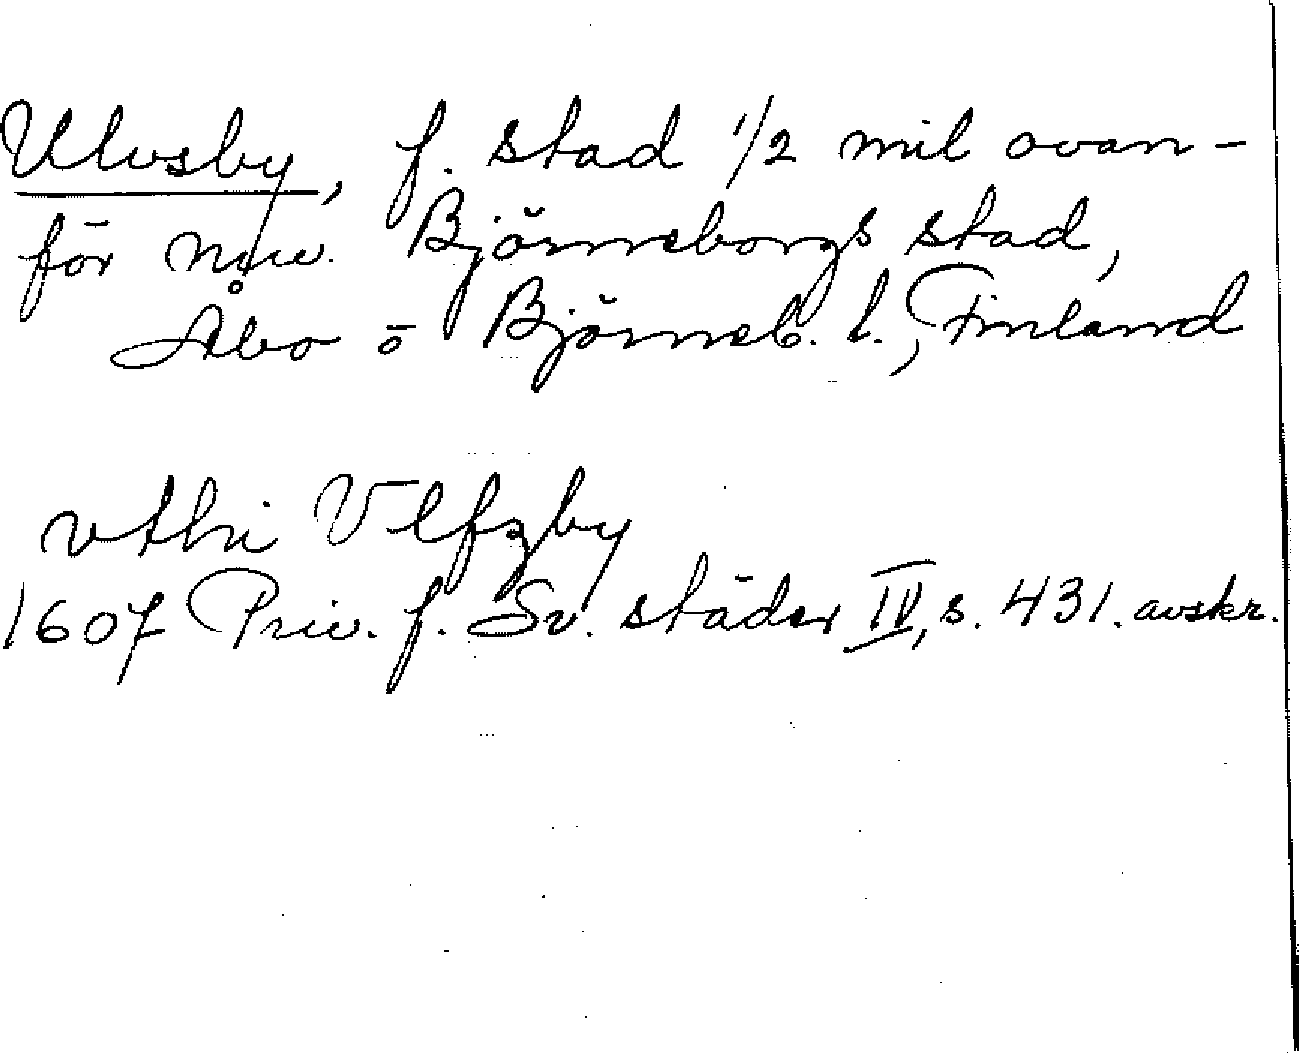 Ulvsby, f. stad 1/2 mil ovan-
för nuv. Björneborgs stad,
Åbo o Björneb. l., Finland
vthi Vlfzby
1607 Priv. f. Sv. städer IV, s. 431. avskr.